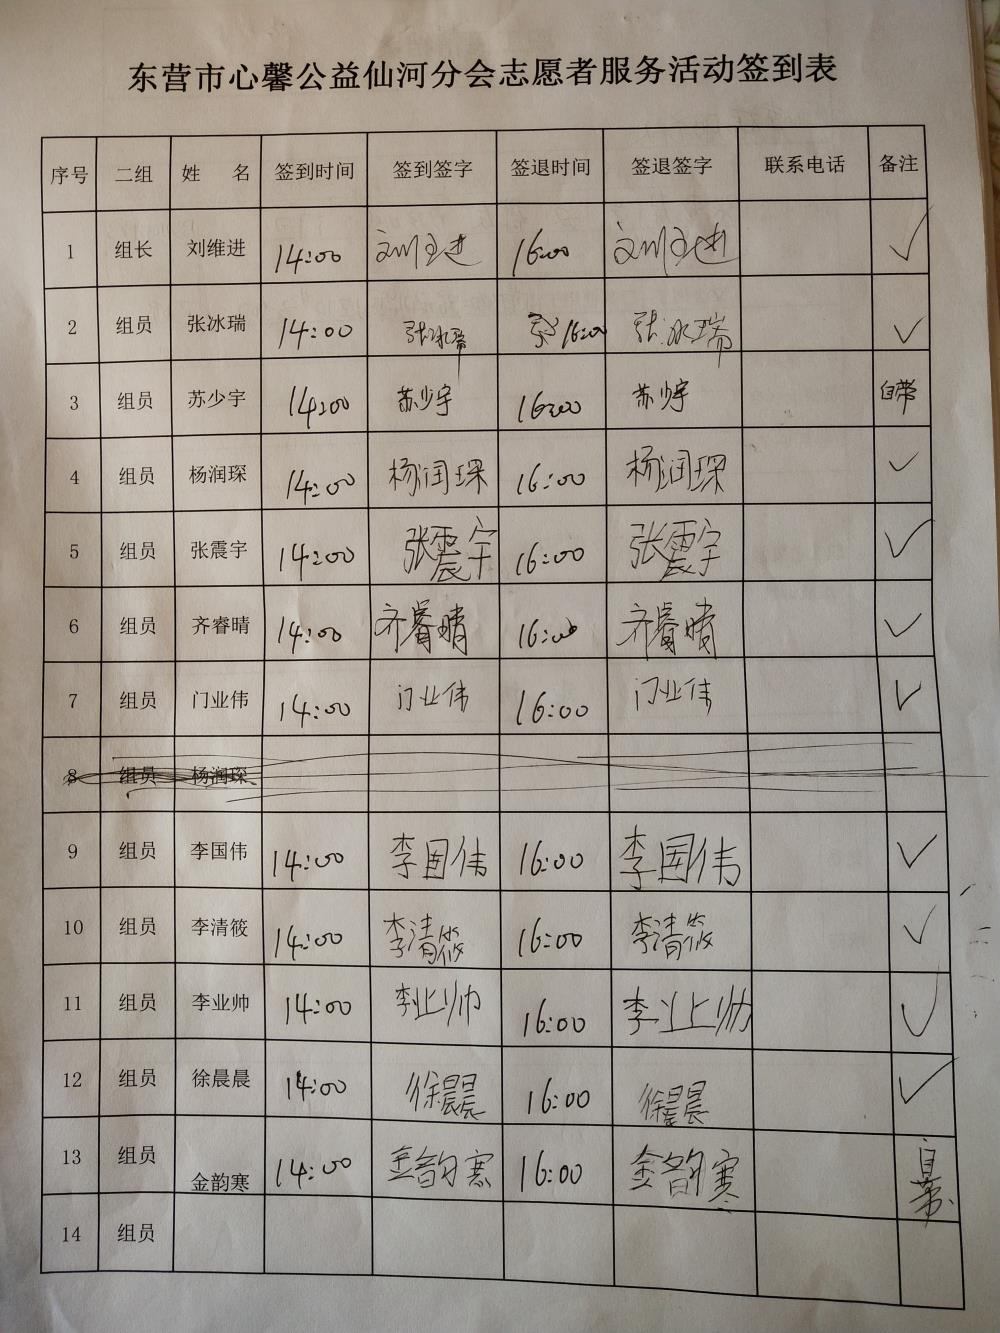 东营市心馨公益仙河分会志愿者服务活动签到表
序号 二组 姓 名 签到时间 签到签字 签退时间 签退签字 联系电话 备注
1 组长 刘维进 14:00 刘维进 16:00 刘维进 ✓
2 组员 张冰瑞 14:00 张冰瑞 16:00 张冰瑞 ✓
3 组员 苏少宇 14:00 苏少宇 16:00 苏少宇 自带
4 组员 杨润琛 14:00 杨润琛 16:00 杨润琛 ✓
5 组员 张震宇 14:00 张震宇 16:00 张震宇 ✓
6 组员 齐睿晴 14:00 齐睿晴 16:00 齐睿晴 ✓
7 组员 门业伟 14:00 门业伟 16:00 门业伟 ✓
8 组员 杨润琛
9 组员 李国伟 14:00 李国伟 16:00 李国伟 ✓
10 组员 李清筱 14:00 李清筱 16:00 李清筱 ✓
11 组员 李业帅 14:00 李业帅 16:00 李业帅 ✓
12 组员 徐晨晨 14:00 徐晨晨 16:00 徐晨晨 ✓
13 组员 金韵寒 14:00 金韵寒 16:00 金韵寒 自带
14 组员